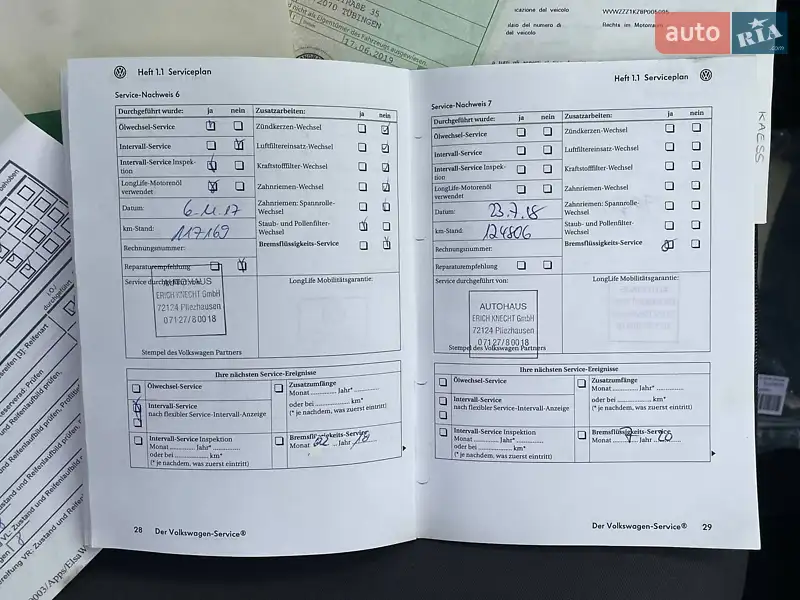 STRAßE 35
72070 TÜBINGEN
nicht als Eigentümer des Fahrzeugs ausgewiesen.
17.06.2019
icazione del veicolo
WVWZZZ1KZ8P005095
del veicolo
Rechts im Motorraum
auto RIA .com
KAESS
Heft 1.1 Serviceplan
Service-Nachweis 6
Durchgeführt wurde: ja nein
Zusatzarbeiten: ja nein
Ölwechsel-Service
Zündkerzen-Wechsel
Intervall-Service
Luftfiltereinsatz-Wechsel
Intervall-Service Inspek-
tion
Kraftstofffilter-Wechsel
LongLife-Motorenöl
verwendet
Zahnriemen-Wechsel
Datum: 6.11.17
Zahnriemen: Spannrolle-
Wechsel
km-Stand: 117169
Staub- und Pollenfilter-
Wechsel
Rechnungsnummer:
Bremsflüssigkeits-Service
Reparaturempfehlung
Service durchgeführt von:
LongLife Mobilitätsgarantie:
AUTOHAUS
ERICH KNECHT GmbH
72124 Pliezhausen
07127/80018
Stempel des Volkswagen Partners
Ihre nächsten Service-Ereignisse
Ölwechsel-Service
Zusatzumfänge
Monat ............ Jahr* ............
oder bei ............ km*
(* je nachdem, was zuerst eintritt)
Intervall-Service
nach flexibler Service-Intervall-Anzeige
Intervall-Service Inspektion
Monat ............ Jahr* ............
oder bei ............ km*
(* je nachdem, was zuerst eintritt)
Bremsflüssigkeits-Service
Monat ... Jahr 18
28 Der Volkswagen-Service®
Heft 1.1 Serviceplan
Service-Nachweis 7
Durchgeführt wurde: ja nein
Zusatzarbeiten: ja nein
Ölwechsel-Service
Zündkerzen-Wechsel
Intervall-Service
Luftfiltereinsatz-Wechsel
Intervall-Service Inspek-
tion
Kraftstofffilter-Wechsel
LongLife-Motorenöl
verwendet
Zahnriemen-Wechsel
Datum: 23.7.18
Zahnriemen: Spannrolle-
Wechsel
km-Stand: 124806
Staub- und Pollenfilter-
Wechsel
Rechnungsnummer:
Bremsflüssigkeits-Service
Reparaturempfehlung
Service durchgeführt von:
LongLife Mobilitätsgarantie:
AUTOHAUS
ERICH KNECHT GmbH
72124 Pliezhausen
07127/80018
Stempel des Volkswagen Partners
Ihre nächsten Service-Ereignisse
Ölwechsel-Service
Zusatzumfänge
Monat ............ Jahr* ............
oder bei ............ km*
(* je nachdem, was zuerst eintritt)
Intervall-Service
nach flexibler Service-Intervall-Anzeige
Intervall-Service Inspektion
Monat ............ Jahr* ............
oder bei ............ km*
(* je nachdem, was zuerst eintritt)
Bremsflüssigkeits-Service
Monat 7 Jahr 20
Der Volkswagen-Service® 29